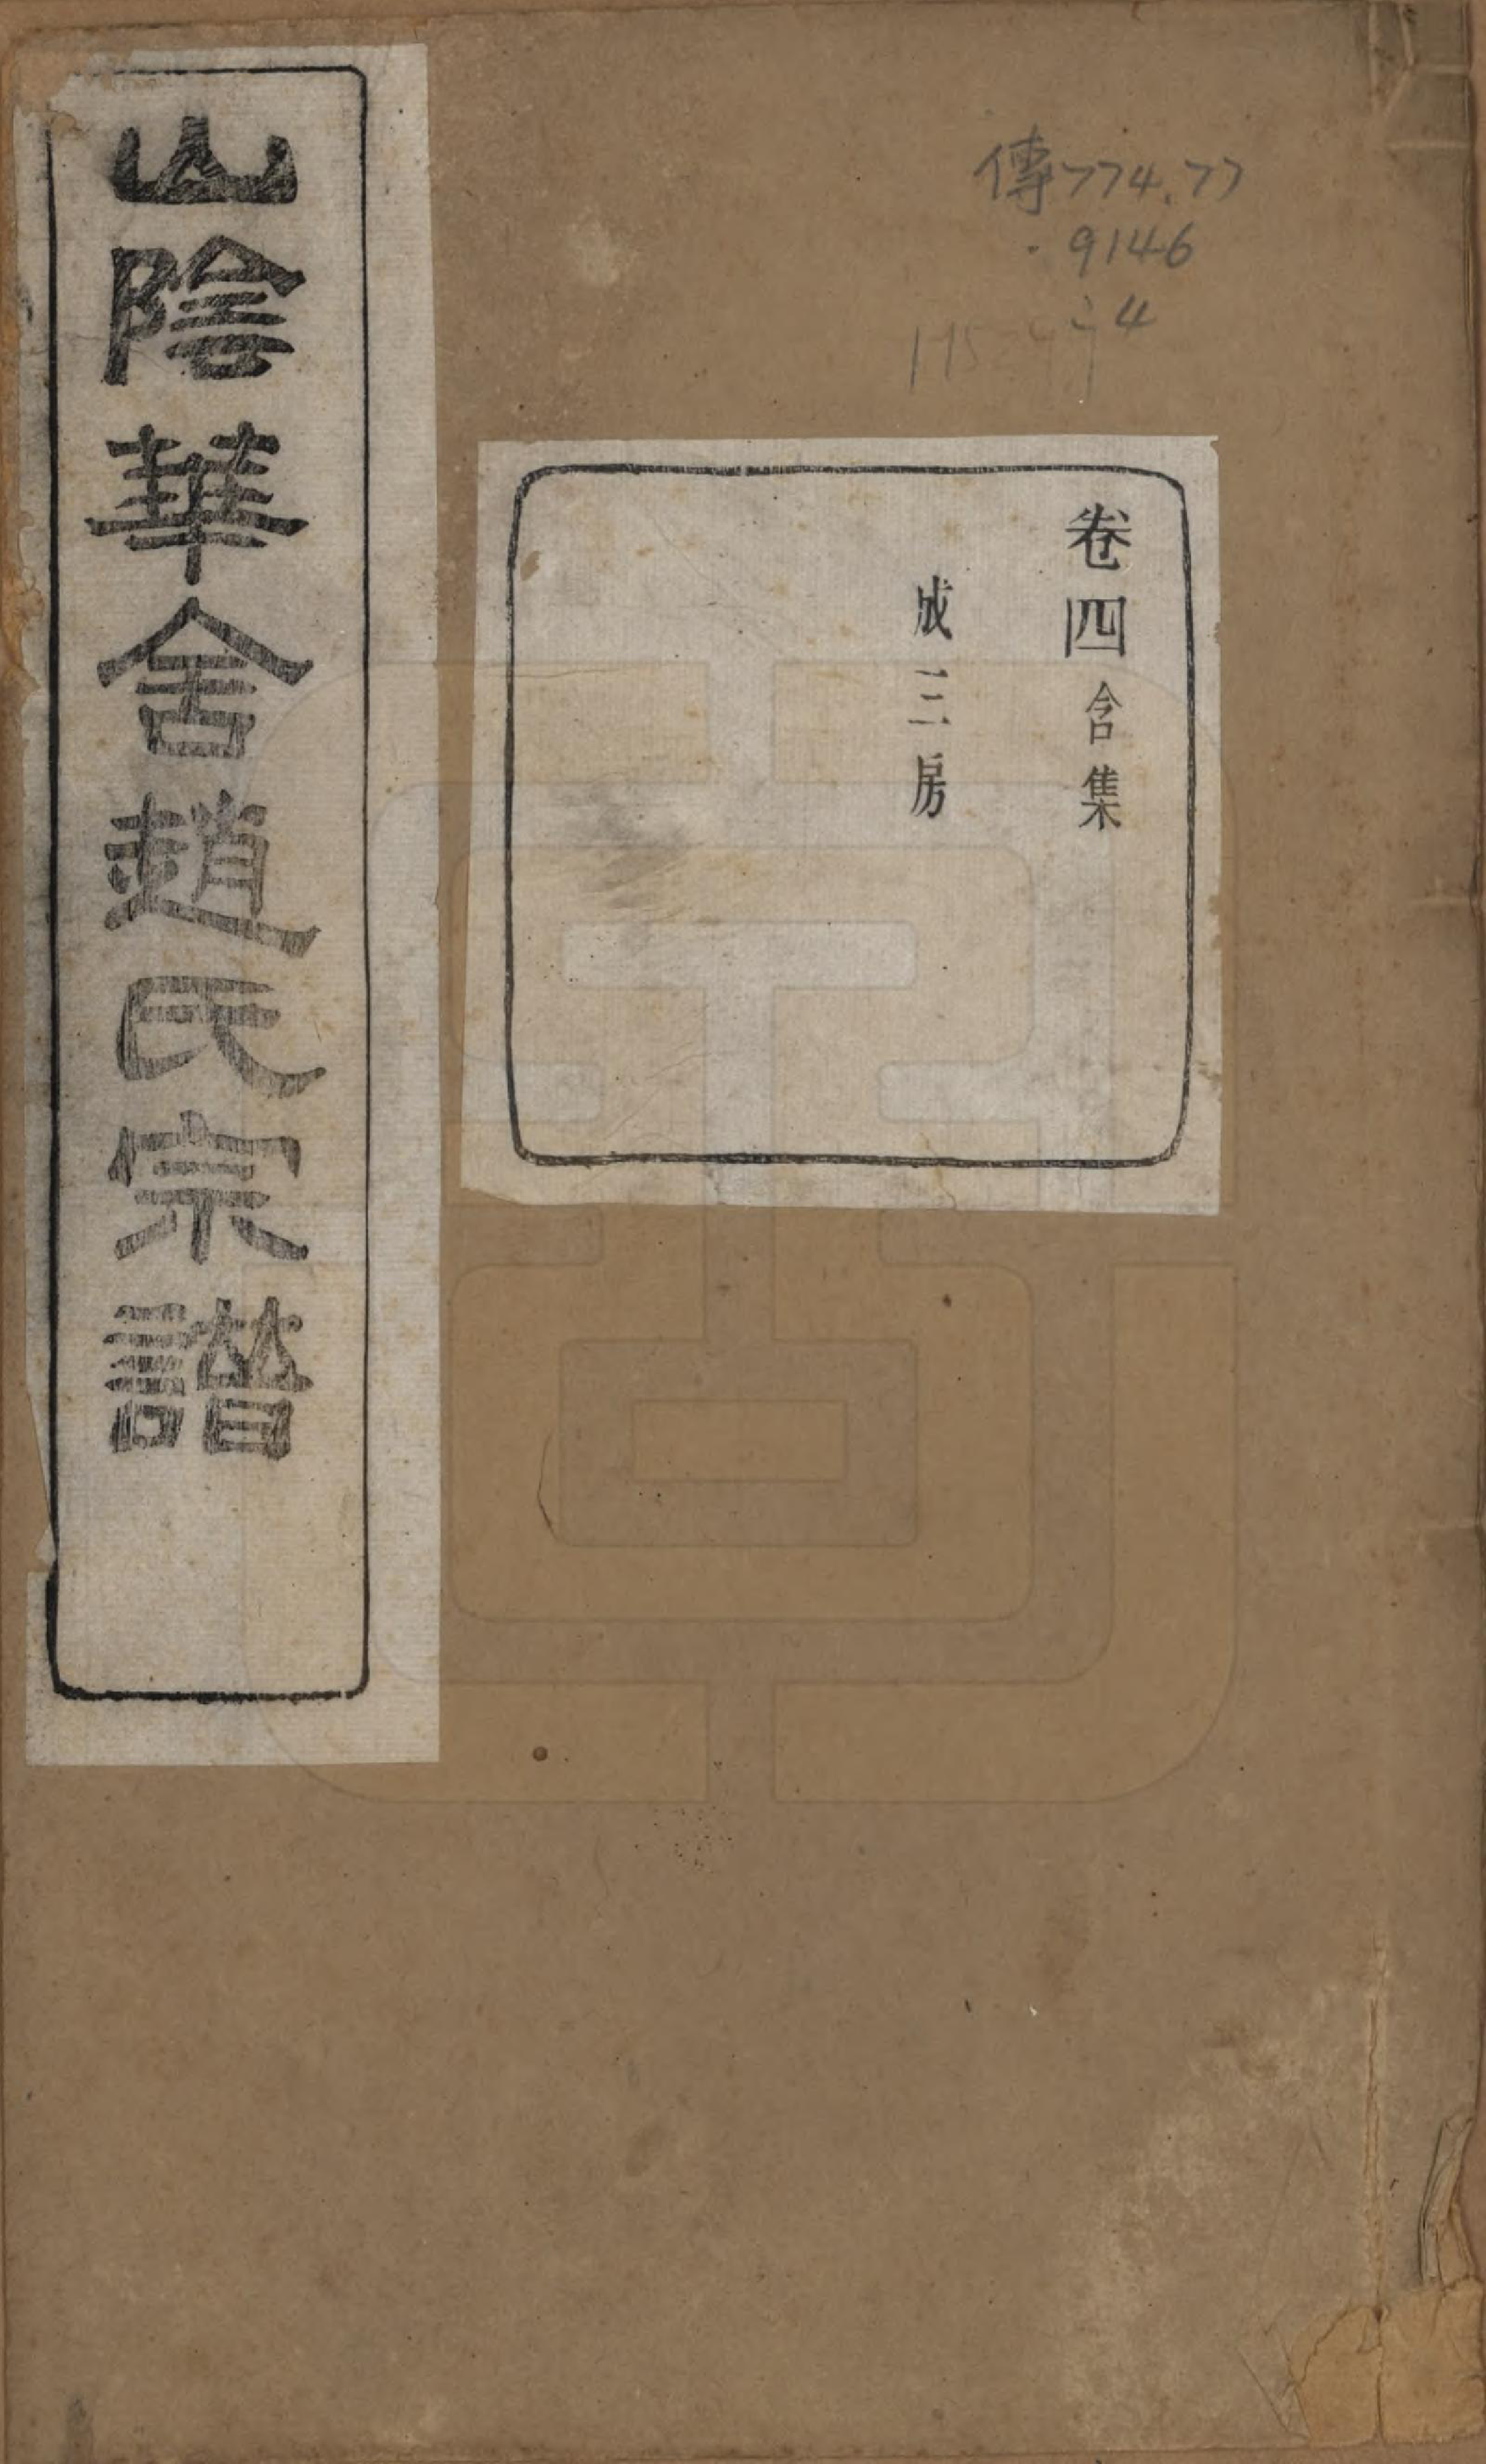 傳774.77
.9146
:4
卷四 含集
成三房
山陰華舍趙氏宗譜